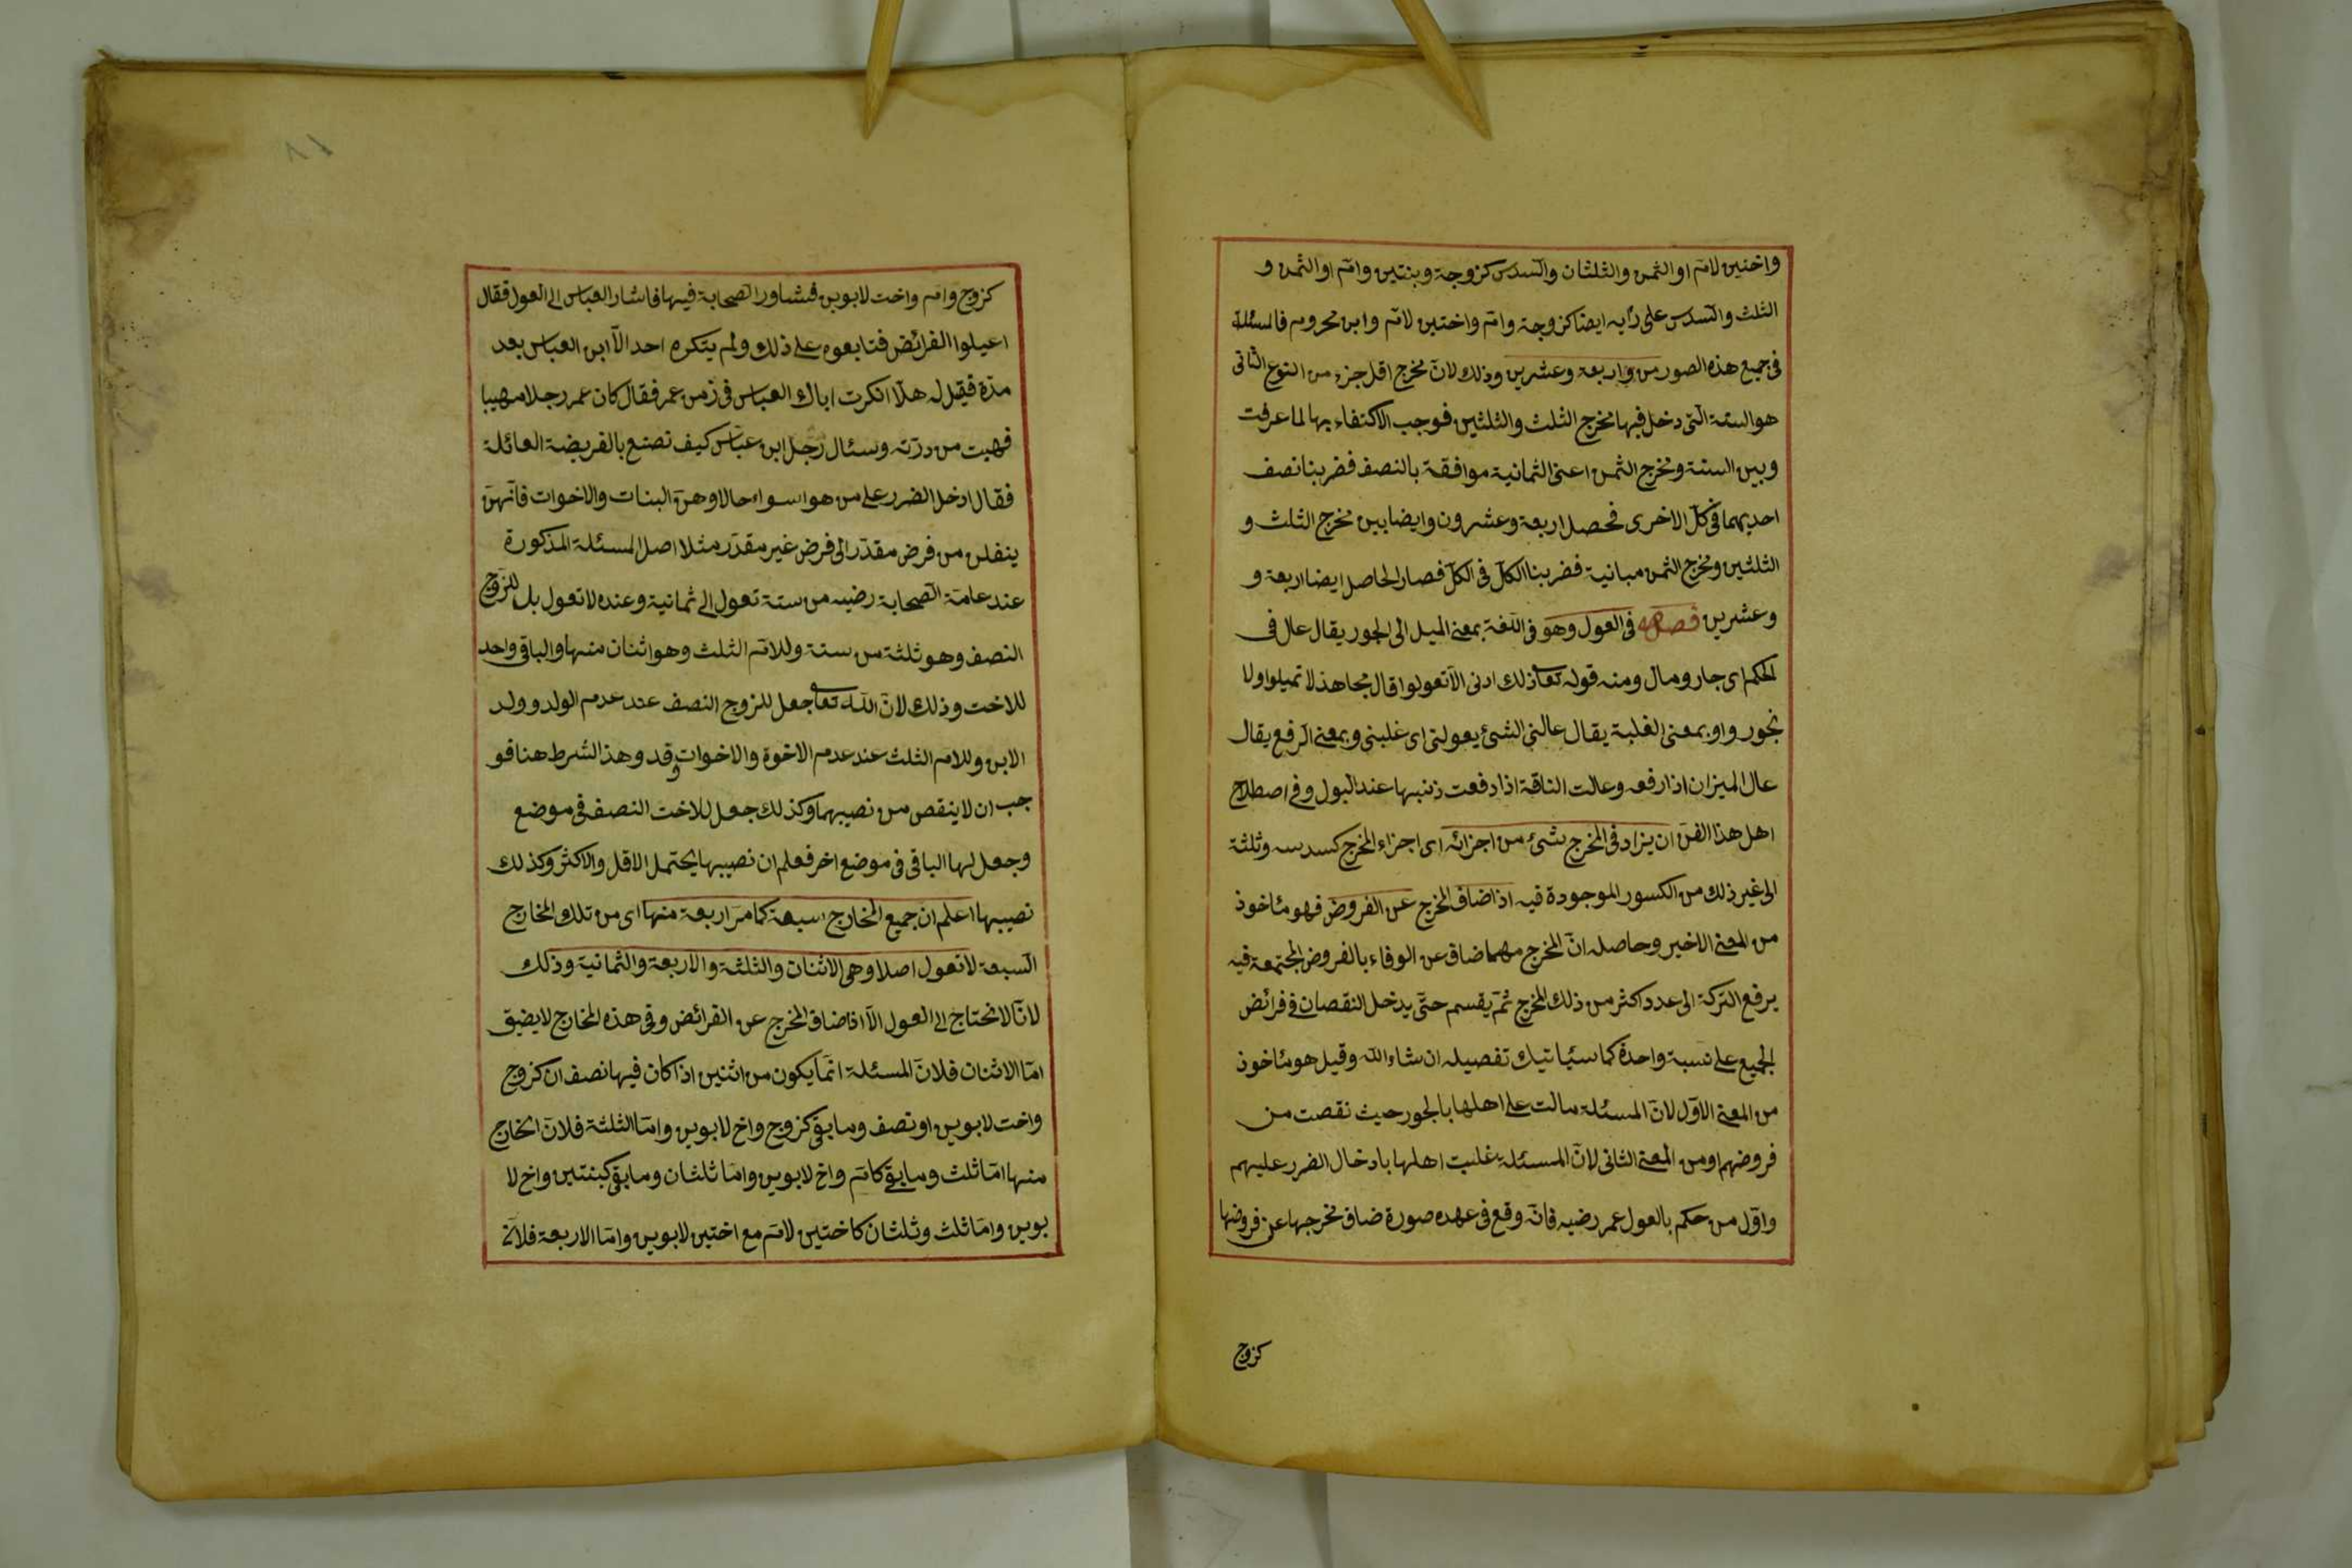 واختين لام او الثمن والثلثان والسدس كزوجة وبنتين وام او الثمن و
الثلث والسدس على رأيه ايضا كزوجة وام واختين لام وابن محروم فالمسئلة
فى جميع هذه الصور من اربعة وعشرين وذلك لان مخرج اقل جزء من النوع الثانى
هو الستة التى دخل فيها مخرج الثلث والثلثين فوجب الاكتفاء بها لما عرفت
وبين الستة ومخرج الثمن اعنى الثمانية موافقة بالنصف فضربنا نصف
احديهما فى كل الاخرى فحصل اربعة وعشرون وايضا بين مخرج الثلث و
الثلثين ومخرج الثمن مباينة فضربنا الكل فى الكل فصار الحاصل ايضا اربعة و
وعشرين فصل فى العول وهو فى اللغة بمعنى الميل الى الجور يقال عال فى
الحكم اى جار ومال ومنه قوله تعا ذلك ادنى الا تعولوا قال مجاهد لا تميلوا ولا
تجوروا او بمعنى الغلبة يقال عالنى الشئ يعولنى اى غلبنى وبمعنى الرفع يقال
عال الميزان اذا رفعه وعالت الناقة اذا رفعت ذنبها عند البول وفى اصطلاح
اهل هذا الفن ان يزاد فى المخرج شئ من اجزائه اى اجزاء المخرج كسدسه وثلثة
الى غير ذلك من الكسور الموجودة فيه اذا ضاق المخرج عن الفروض فهو مئاخوذ
من المعنى الاخير وحاصله ان المخرج مهما ضاق عن الوفاء بالفروض المجتمعة فيه
يرفع التركة الى عدد اكثر من ذلك المخرج ثم يقسم حتى يدخل النقصان فى فرائض
الجميع على نسبة واحدة كما سيئاتيك تفصيله ان شاء الله وقيل هو مئاخوذ
من المعنى الاول لان المسئلة مالت على اهلها بالجور حيث نقصت من
فروضهم او من المعنى الثانى لان المسئلة غلبت اهلها بادخال الضرر عليهم
واول من حكم بالعول عمر رضيه فانه وقع فى عهده صورة ضاق مخرجها عن فروضها
كزوج
٨١
كزوج وام واخت لابوين فشاور الصحابة فيها فاشار العباس الى العول فقال
اعيلوا الفرائض فتابعوه على ذلك ولم ينكره احد الا ابن العباس بعد
مدة فقيل له هلا انكرت اباك العباس فى زمن عمر فقال كان عمر رجلا مهيبا
فهبت من درته وسئال رجل ابن عباس كيف تصنع بالفريضة العائلة
فقال ادخل الضرر على من هو اسواء حالا وهن البنات والاخوات فانهن
ينقلن من فرض مقدر الى فرض غير مقدر مثلا اصل المسئلة المذكورة
عند عامة الصحابة رضيه من ستة تعول الى ثمانية وعنده لا تعول بل للزوج
النصف وهو ثلثة من ستة وللام الثلث وهو اثنان منها والباقى واحد
للاخت وذلك لان الله تعا جعل للزوج النصف عند عدم الولد وولد
الابن وللام الثلث عند عدم الاخوة والاخوات وقد وهذا الشرط هنا فو
جب ان لا ينقص من نصيبهما وكذلك جعل للاخت النصف فى موضع
وجعل لها الباقى فى موضع اخر فعلم ان نصيبها يحتمل الاقل والاكثر وكذلك
نصيبها اعلم ان جميع المخارج سبعة كما مر اربعة منها اى من تلك المخارج
السبعة لا تعول اصلا وهى الاثنان والثلثة والاربعة والثمانية وذلك
لانا لا نحتاج الى العول الا اذا ضاق المخرج عن الفرائض وفى هذه المخارج لا يضيق
اما الاثنان فلان المسئلة انما يكون من اثنين اذا كان فيها نصف ان كزوج
واخت لابوين او نصف وما بقى كزوج واخ لابوين واما الثلثة فلان الخارج
منها اما ثلث وما بقى كام واخ لابوين واما ثلثان وما بقى كبنتين واخ لا
بوين واما ثلث وثلثان كاختين لام مع اختين لابوين واما الاربعة فلان